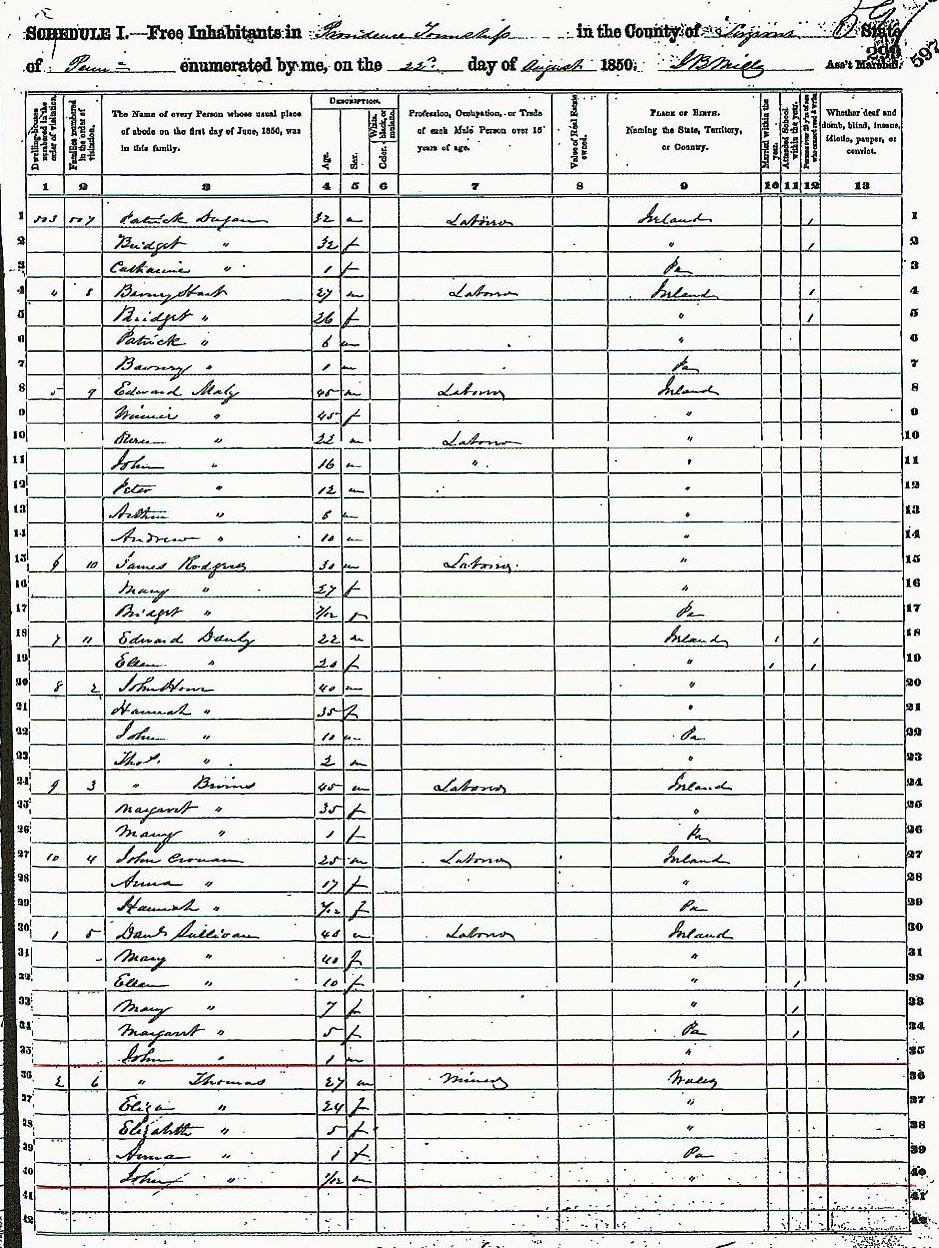 SCHEDULE I.—Free Inhabitants in Providence Township in the County of Luzerne State
of Penn enumerated by me, on the 22d day of August 1850. Ass't Marshal. 597
Dwelling-houses numbered in the order of visitation.
Families numbered in the order of visitation.
The Name of every Person whose usual place of abode on the first day of June, 1850, was in this family.
DESCRIPTION.
Age.
Sex.
Color, White, black, or mulatto.
Profession, Occupation, or Trade of each Male Person over 15 years of age.
Value of Real Estate owned.
PLACE OF BIRTH. Naming the State, Territory, or Country.
Married within the year.
Attended School within the year.
Persons over 20 y'rs of age who cannot read & write.
Whether deaf and dumb, blind, insane, idiotic, pauper, or convict.
1 2 3 4 5 6 7 8 9 10 11 12 13
1 503 507 Patrick Dugan 32 m Laborer Ireland 1 1
2 Bridget " 32 f " 1 2
3 Catharine " 1 f Pa 3
4 " 8 Barney Hart 27 m Laborer Ireland 1 4
5 Bridget " 26 f " 1 5
6 Patrick " 6 m " 6
7 Barney " 1 m Pa 7
8 5 9 Edward Maly 45 m Laborer Ireland 8
9 " 45 f " 9
10 " 22 m Laborer " 10
11 John " 16 m " " 11
12 Peter " 12 m " 12
13 Arthur " 6 m " 13
14 Andrew " 10 m " 14
15 6 10 James Rodgers 30 m Laborer " 15
16 Mary " 27 f " 16
17 Bridget " 7/12 f Pa 17
18 7 11 Edward 22 m Ireland 1 1 18
19 Ellen " 20 f " 1 1 19
20 8 2 John 40 m " 20
21 Hannah " 35 f " 21
22 John " 10 m Pa 22
23 Thos. " 2 m " 23
24 9 3 " 45 m Laborer Ireland 24
25 Margaret " 35 f " 25
26 Mary " 1 f Pa 26
27 10 4 John Cronan 25 m Laborer Ireland 27
28 Anna " 17 f " 28
29 Hannah " 7/12 f Pa 29
30 1 5 Danl Sullivan 40 m Laborer Ireland 30
31 Mary " 40 f " 31
32 Ellen " 10 f " 1 32
33 Mary " 7 f " 1 33
34 Margaret " 5 f Pa 1 34
35 John " 1 m " 35
36 2 6 " Thomas 27 m Miner Wales 36
37 Eliza " 24 f " 37
38 Elizabeth " 5 f " 38
39 Anna " 1 f Pa 39
40 John " m " 40
41 41
42 42